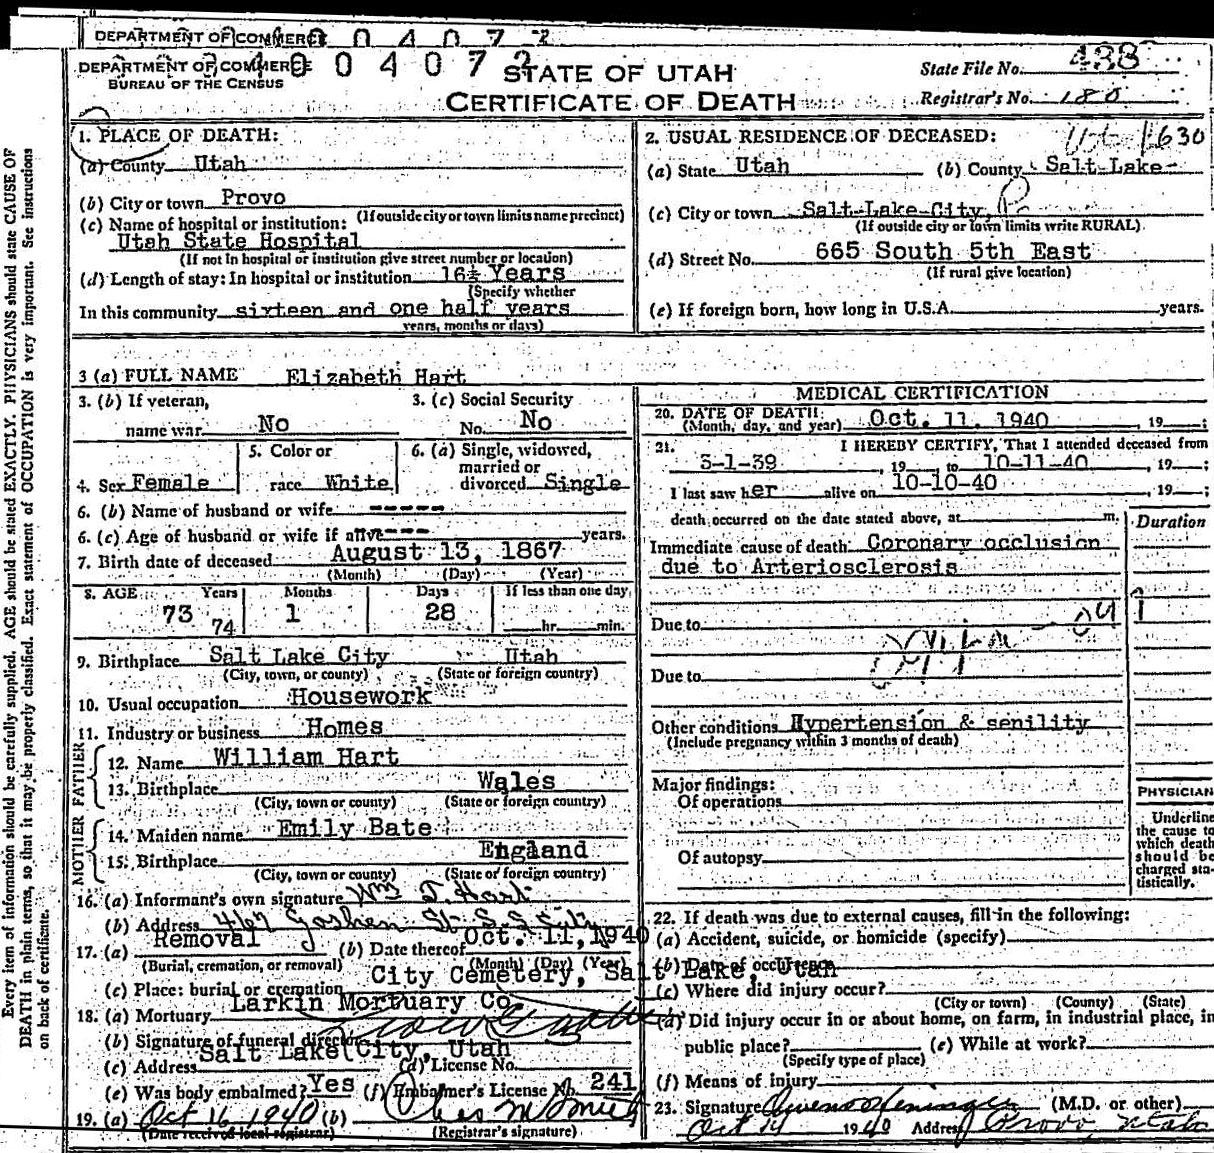 DEPARTMENT OF COMMERCE
DEPARTMENT OF COMMERCE
BUREAU OF THE CENSUS
0 0 4 0 7 2
STATE OF UTAH
CERTIFICATE OF DEATH
State File No. 438
Registrar's No. 180
1. PLACE OF DEATH:
(a) County Utah
(b) City or town Provo
(If outside city or town limits name precinct)
(c) Name of hospital or institution:
Utah State Hospital
(If not in hospital or institution give street number or location)
(d) Length of stay: In hospital or institution 16½ Years
(Specify whether
In this community sixteen and one half years
years, months or days)
2. USUAL RESIDENCE OF DECEASED:
1630
(a) State Utah (b) County Salt Lake
(c) City or town Salt Lake City,
(If outside city or town limits write RURAL)
(d) Street No. 665 South 5th East
(If rural give location)
(e) If foreign born, how long in U.S.A. years.
3 (a) FULL NAME Elizabeth Hart
3. (b) If veteran,
name war No
3. (c) Social Security
No. No
4. Sex Female
5. Color or
race White
6. (a) Single, widowed,
married or
divorced Single
6. (b) Name of husband or wife -----
6. (c) Age of husband or wife if alive ---- years.
7. Birth date of deceased August 13, 1867
(Month) (Day) (Year)
8. AGE Years Months Days If less than one day
73 74 1 28 hr. min.
9. Birthplace Salt Lake City Utah
(City, town, or county) (State or foreign country)
10. Usual occupation Housework
11. Industry or business Homes
FATHER
12. Name William Hart
13. Birthplace Wales
(City, town or county) (State or foreign country)
MOTHER
14. Maiden name Emily Bate
15. Birthplace England
(City, town or county) (State or foreign country)
16. (a) Informant's own signature Wm T. Hart
(b) Address 467 Goshen St. S L City
17. (a) Removal (b) Date thereof Oct. 11, 1940
(Burial, cremation, or removal) (Month) (Day) (Year)
(c) Place: burial or cremation City Cemetery, Salt Lake, Utah
18. (a) Mortuary Larkin Mortuary Co.
(b) Signature of funeral director
(c) Address Salt Lake City, Utah (d) License No.
(e) Was body embalmed? Yes (f) Embalmer's License No. 241
19. (a) Oct 16, 1940 (b) Chas M Smith
(Date received local registrar) (Registrar's signature)
MEDICAL CERTIFICATION
20. DATE OF DEATH: Oct. 11, 1940, 19 ;
(Month, day, and year)
21. I HEREBY CERTIFY, That I attended deceased from
3-1-39, 19 , to 10-11-40, 19 ;
I last saw her alive on 10-10-40, 19 ;
death occurred on the date stated above, at m.
Duration
Immediate cause of death Coronary occlusion
due to Arteriosclerosis
Due to
Due to
Other conditions Hypertension & senility
(Include pregnancy within 3 months of death)
Major findings:
Of operations
Of autopsy
PHYSICIAN
Underline
the cause to
which death
should be
charged sta-
tistically.
22. If death was due to external causes, fill in the following:
(a) Accident, suicide, or homicide (specify)
(b) Date of occurrence
(c) Where did injury occur?
(City or town) (County) (State)
(d) Did injury occur in or about home, on farm, in industrial place, in
public place? (e) While at work?
(Specify type of place)
(f) Means of injury
23. Signature (M.D. or other)
Oct 14 1940 Address Provo, Utah
Every item of information should be carefully supplied. AGE should be stated EXACTLY. PHYSICIANS should state CAUSE OF
DEATH in plain terms, so that it may be properly classified. Exact statement of OCCUPATION is very important. See instructions
on back of certificate.